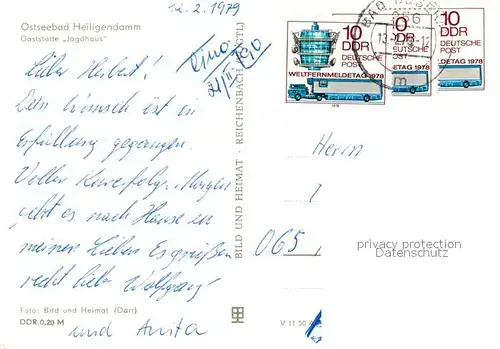 12.2.1979
Ostseebad Heiligendamm
Gaststätte „Jagdhaus"
Lieber Herbert!
Dein Wunsch ist in
Erfüllung gegangen.
Voller Kurerfolg. Morgen
geht es nach Hause zu
meinen Lieben. Es grüßen
recht lieb Wolfgang
und Anita
Foto: Bild und Heimat (Darr)
DDR 0,20 M
BILD UND HEIMAT · REICHENBACH (VOGTL)
V 11 50
10
DDR
DEUTSCHE
POST
WELTFERNMELDETAG 1978
10
DDR
DEUTSCHE
POST
DETAG 1978
10
DDR
DEUTSCHE
POST
DETAG 1978
BAD
Herrn
065
privacy protection
Datenschutz